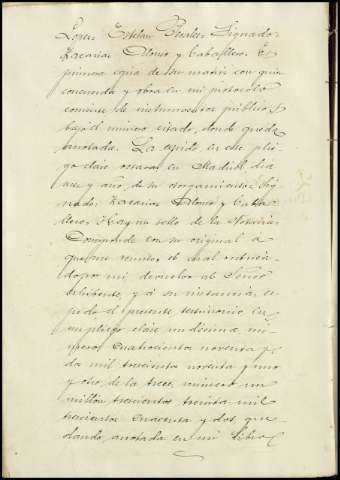 Lopez Esteban Perales. Signado:
Zacarias Alonso y Caballero. Es
primera copia de su matriz con quien
concuerda y obra en mi protocolo
corriente de instrumentos públicos
bajo el número citado, donde queda
anotada. La expido en este plie-
go clase octava en Madrid, dia
mes y año de su otorgamiento. Sig-
nado: Zacarias Alonso y Caba-
llero. Hay un sello de la Notaria.
Corresponde con su original a
que me remito, el cual rubrica-
do por mi devuelvo al Señor
exhibente, y á su instancia, ex-
pido el presente testimonio en
un pliego clase undécima nú-
mero cuatrocientos noventa y
da mil trescientos noventa y uno
y otro de la trece, número un
millon trescientos treinta mil
trescientos cuarenta y dos, que-
dando anotada en mi libro